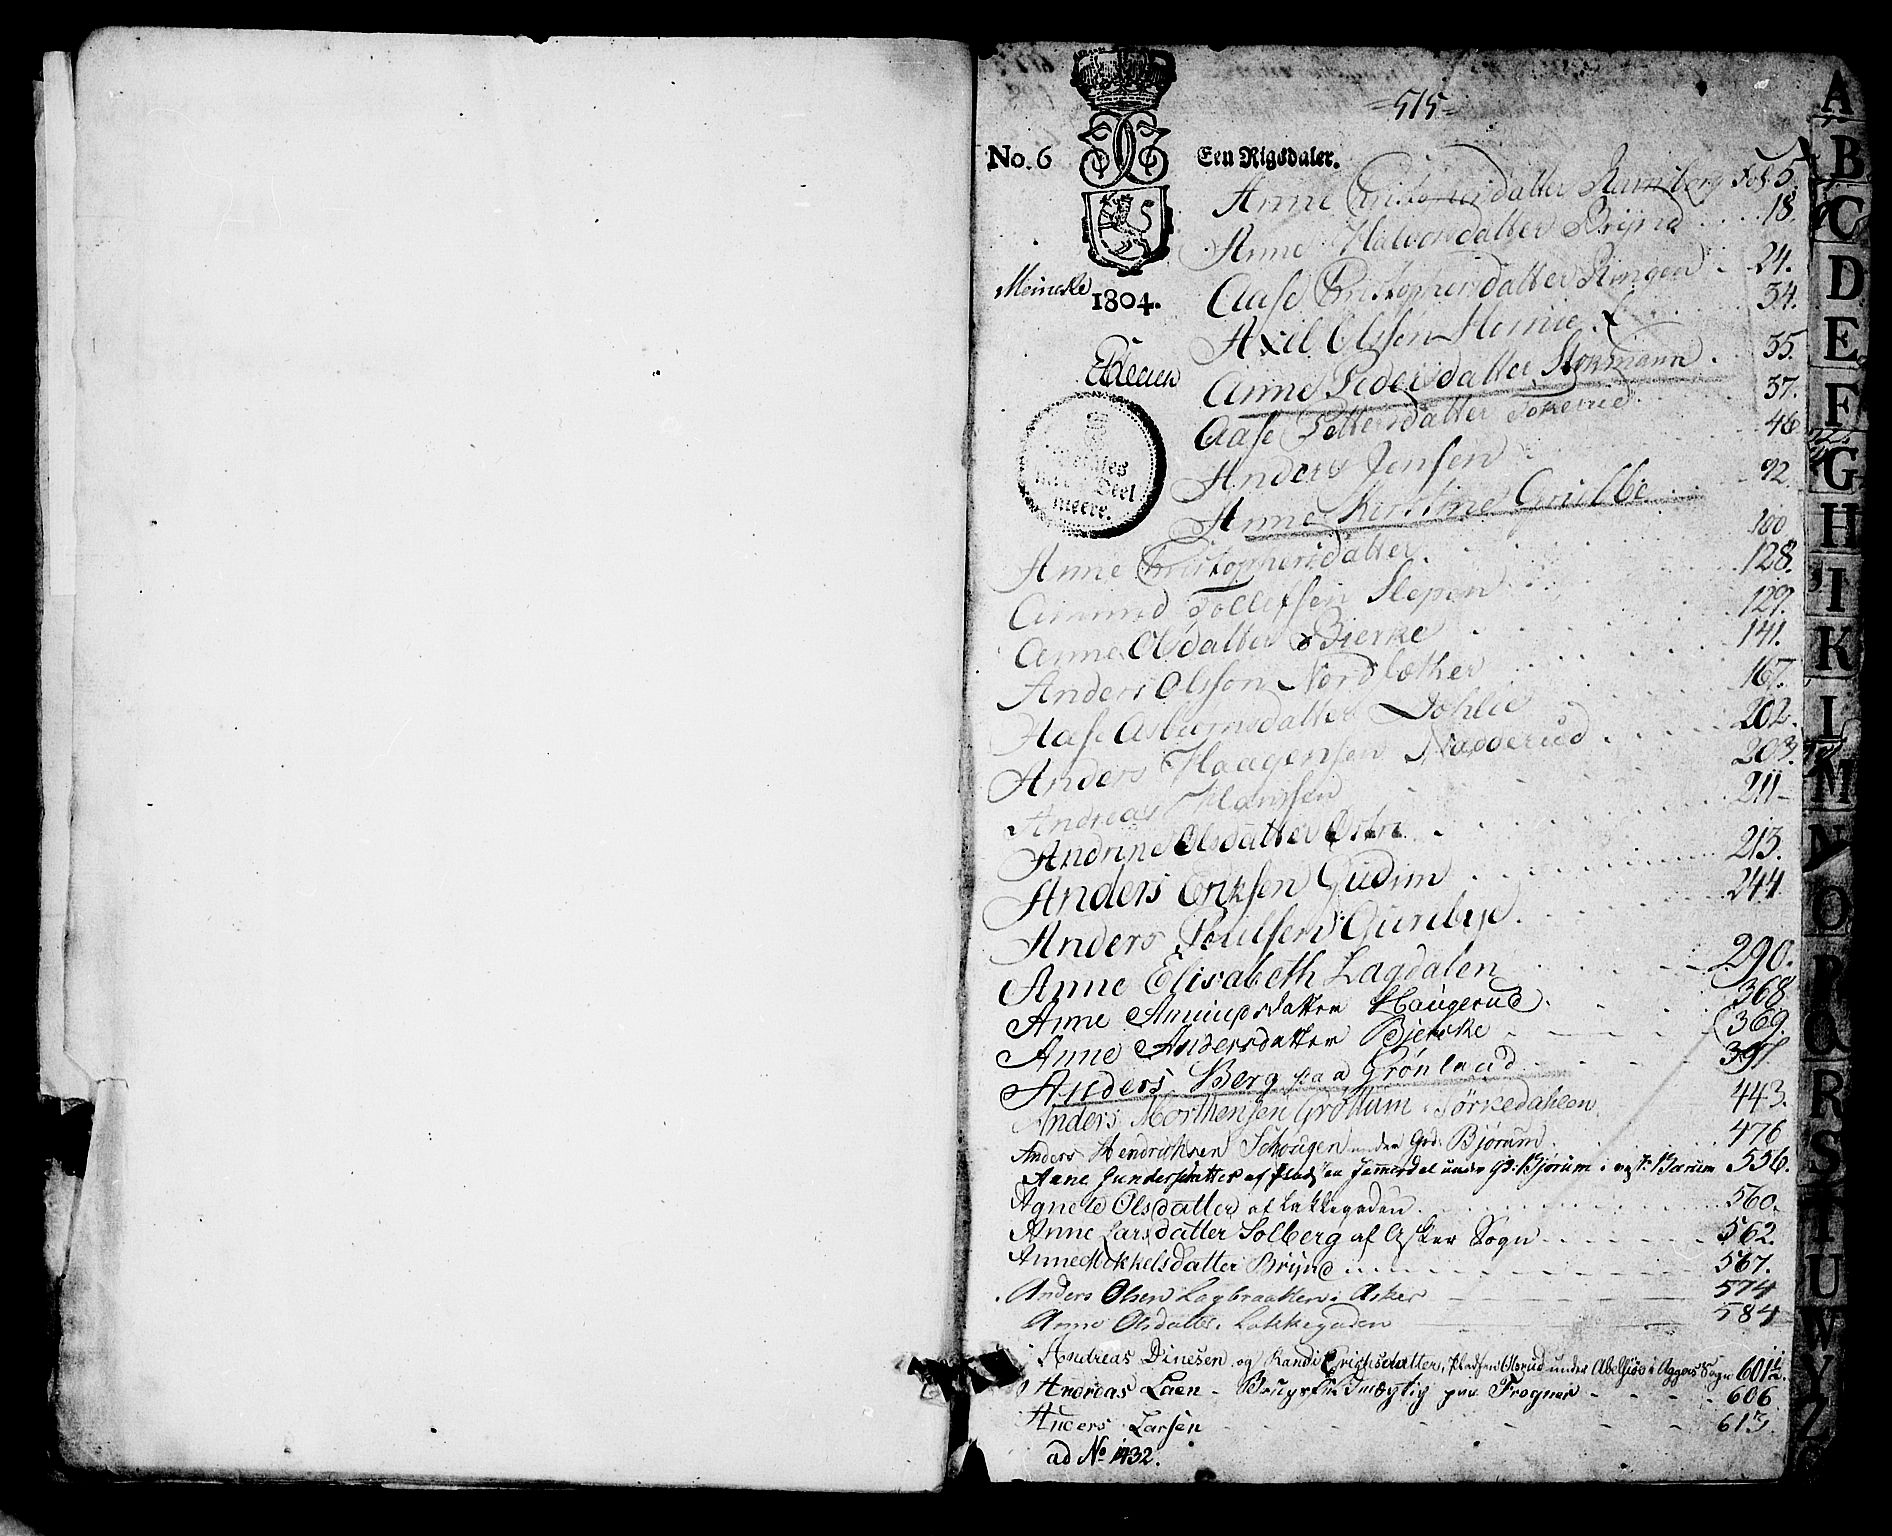 =515=
No. 6
Een Rigsdaler.
Anne Christophersdatter Ramberg Fol. 5.
Anne Halvorsdatter Brÿnd 18.
Aase Christophersdatter Ringen 24.
1804.
Axel Olssen Hemie 34.
Anne Pedersdatter Stokmann 35.
Aase Pettersdatter Tokerud 37.
Anders Jensen 46
meere.
Anne Kirstine 92.
Anne Christophersdatter 100
Amund Tollefsen Slepen 128.
Anne Olsdatter Bierke 129.
Anders Olsson Nord 141.
Aase Asbiørnsdatter Dohlie 167.
Anders Haagensen Nadderud 202.
Andreas Hansen 203.
Andrine Olsdatter Østri 211
Anders Eriksen Gudim 213.
Anders Poulsen 244
Anne Elisabeth Lagdalen 290.
Anne Amundsdatter Haugerud 368
Anne Andersdatter Bjercke 369.
Anders Berg paa Grønland 391.
Anders Morthensen Grøttum i Sørkedahlen 443.
Anders Hendrichsen Schougen under Grd. Bjørum 476
Anne Gundersdatter af Pladsen under Gd: Bjørum i Bærum 556.
Agnete Olsdatter af Lakkegaden 560.
Anne Larsdatter Solberg af Asker Sogn 562.
Anne Mikkelsdatter Brÿnd 567.
Anders Olsen Lagbraatten i Asker 574
Anne Olsdatter Lakkegaden 584
Andreas Dinesen og Randi Erichsdatter, Pladsen under Abelsøe i Aggers Sogn 601½.
Andreas Laen - paa Frogner 606
Anders Larsen 613
ad No 1432.
A
B
C
D
E
F
G
H
I
K
L
M
N
O
P
Q
R
S
T
U
W
Y
Z